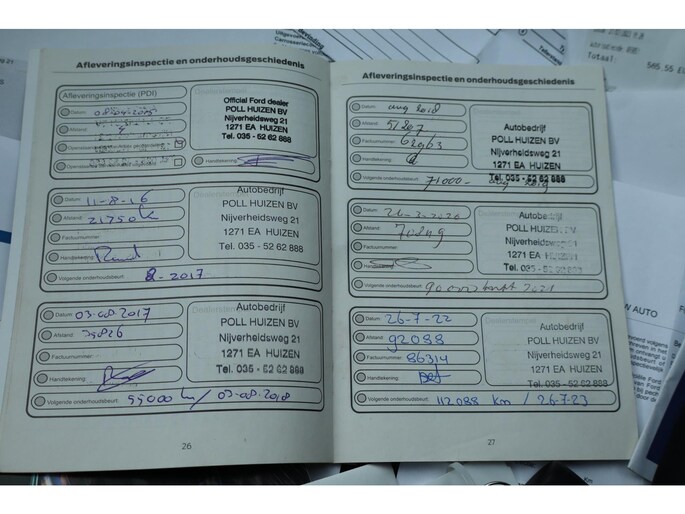 Afleveringsinspectie en onderhoudsgeschiedenis
Afleveringsinspectie (PDI)
Datum:
Afstand:
Handtekening:
Official Ford dealer
POLL HUIZEN BV
Nijverheidsweg 21
1271 EA HUIZEN
Tel. 035 - 52 62 888
Datum: 11-8-16
Afstand: 21750 k
Factuurnummer:
Handtekening:
Volgende onderhoudsbeurt: 8-2017
Autobedrijf
POLL HUIZEN BV
Nijverheidsweg 21
1271 EA HUIZEN
Tel. 035 - 52 62 888
Datum: 03-08-2017
Afstand: 39826
Factuurnummer:
Handtekening:
Volgende onderhoudsbeurt: 55000 km / 03-08-2018
Autobedrijf
POLL HUIZEN BV
Nijverheidsweg 21
1271 EA HUIZEN
Tel. 035 - 52 62 888
26
Afleveringsinspectie en onderhoudsgeschiedenis
Datum: aug 2018
Afstand: 51207
Factuurnummer: 62963
Handtekening:
Volgende onderhoudsbeurt: 71000- aug 2019
Autobedrijf
POLL HUIZEN BV
Nijverheidsweg 21
1271 EA HUIZEN
Tel. 035 - 52 62 888
Datum:
Afstand: 70849
Factuurnummer:
Handtekening:
Volgende onderhoudsbeurt:
Autobedrijf
POLL HUIZEN BV
Nijverheidsweg 21
1271 EA HUIZEN
Tel. 035 - 52 62 888
Datum: 26-7-22
Afstand: 92088
Factuurnummer: 86314
Handtekening:
Volgende onderhoudsbeurt: 112088 km / 26-7-23
Autobedrijf
POLL HUIZEN BV
Nijverheidsweg 21
1271 EA HUIZEN
Tel. 035 - 52 62 888
27
Totaal:
565,55 EU
W AUTO